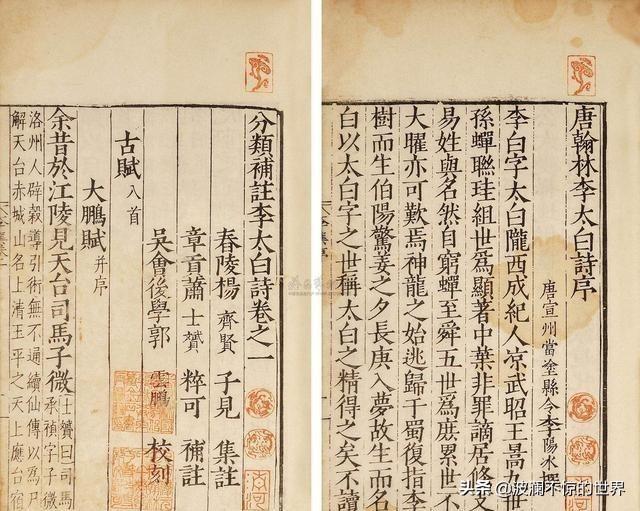 唐翰林李太白詩序
唐宣州當塗縣令李陽冰撰
李白字太白隴西成紀人凉武昭王暠九世
孫蟬聯珪組世爲顯著中葉非罪謫居條
易姓與名然自窮蟬至舜五世爲庶累世不
大曜亦可歎焉神龍之始逃歸于蜀復指李
樹而生伯陽驚姜之夕長庚入夢故生而名
白以太白字之世稱太白之精得之矣不讀
分類補註李太白詩卷之一
舂陵楊 齊賢 子見 集註
章貢蕭 士贇 粹可 補註
吳會後學郭 雲鵬 校刻
古賦 八首
大鵬賦 并序
余昔於江陵見天台司馬子微 士贇曰司馬
承禎字子微
洛州人辟穀導引術無不通續仙傳以爲尸
解天台赤城山名上清玉平之天上應台宿
头条 @波澜不惊的世界